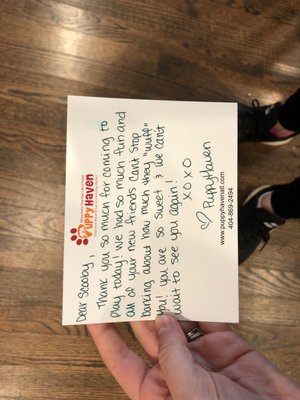 PUPPY HAVEN
Dear Scooby,
Thank you so much for coming to
play today! We had so much fun and
all of your new friends can't stop
barking about how much they "wuff"
you! You are so sweet & we can't
wait to see you again!
XOXO
♡ Puppy Haven
www.puppyhavenatl.com
404-869-2494